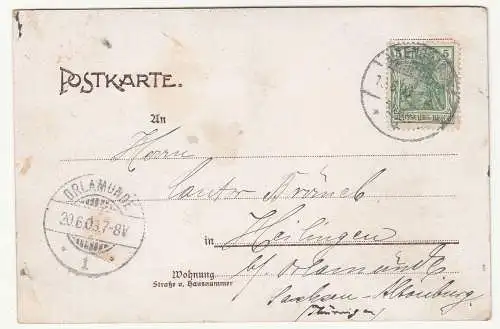 POSTKARTE.
5
DEUTSCHES REICH
An
Herrn
Cantor
ORLAMÜNDE
20.6.03.7-8V
* 1 *
in Heilingen
b/ Orlamünde
Wohnung
Straße u. Hausnummer
Sachsen-Altenburg
(Thüringen)